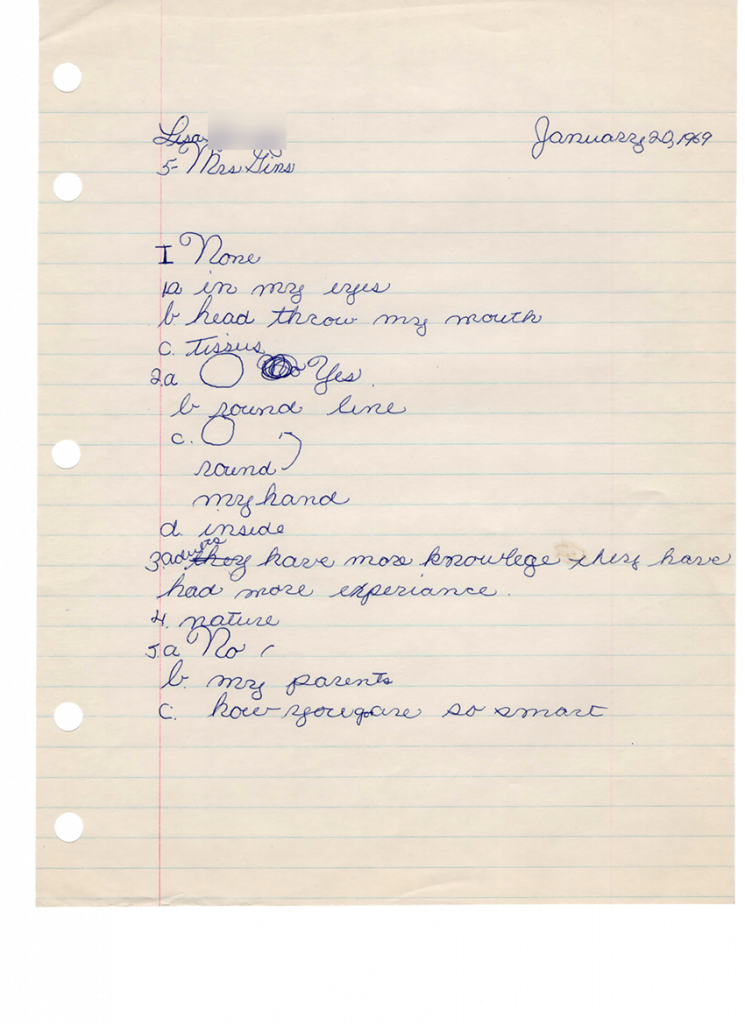 Lisa
January 20, 1969
5- Mrs Gins
I None
1a in my eyes
b head throw my mouth
c. tissus
2a Yes
b round line
c.
round
my hand
d. inside
3a they have more knowlege they have
had more experiance.
4. nature
5.a No
b. my parents
c. how you are so smart